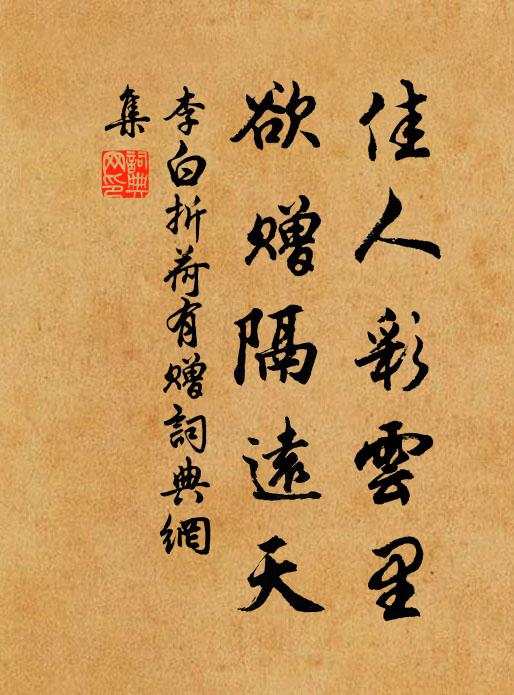 佳人彩雲里
欲赠隔遠天
李白折荷有赠詞典網
集
詞典
网印